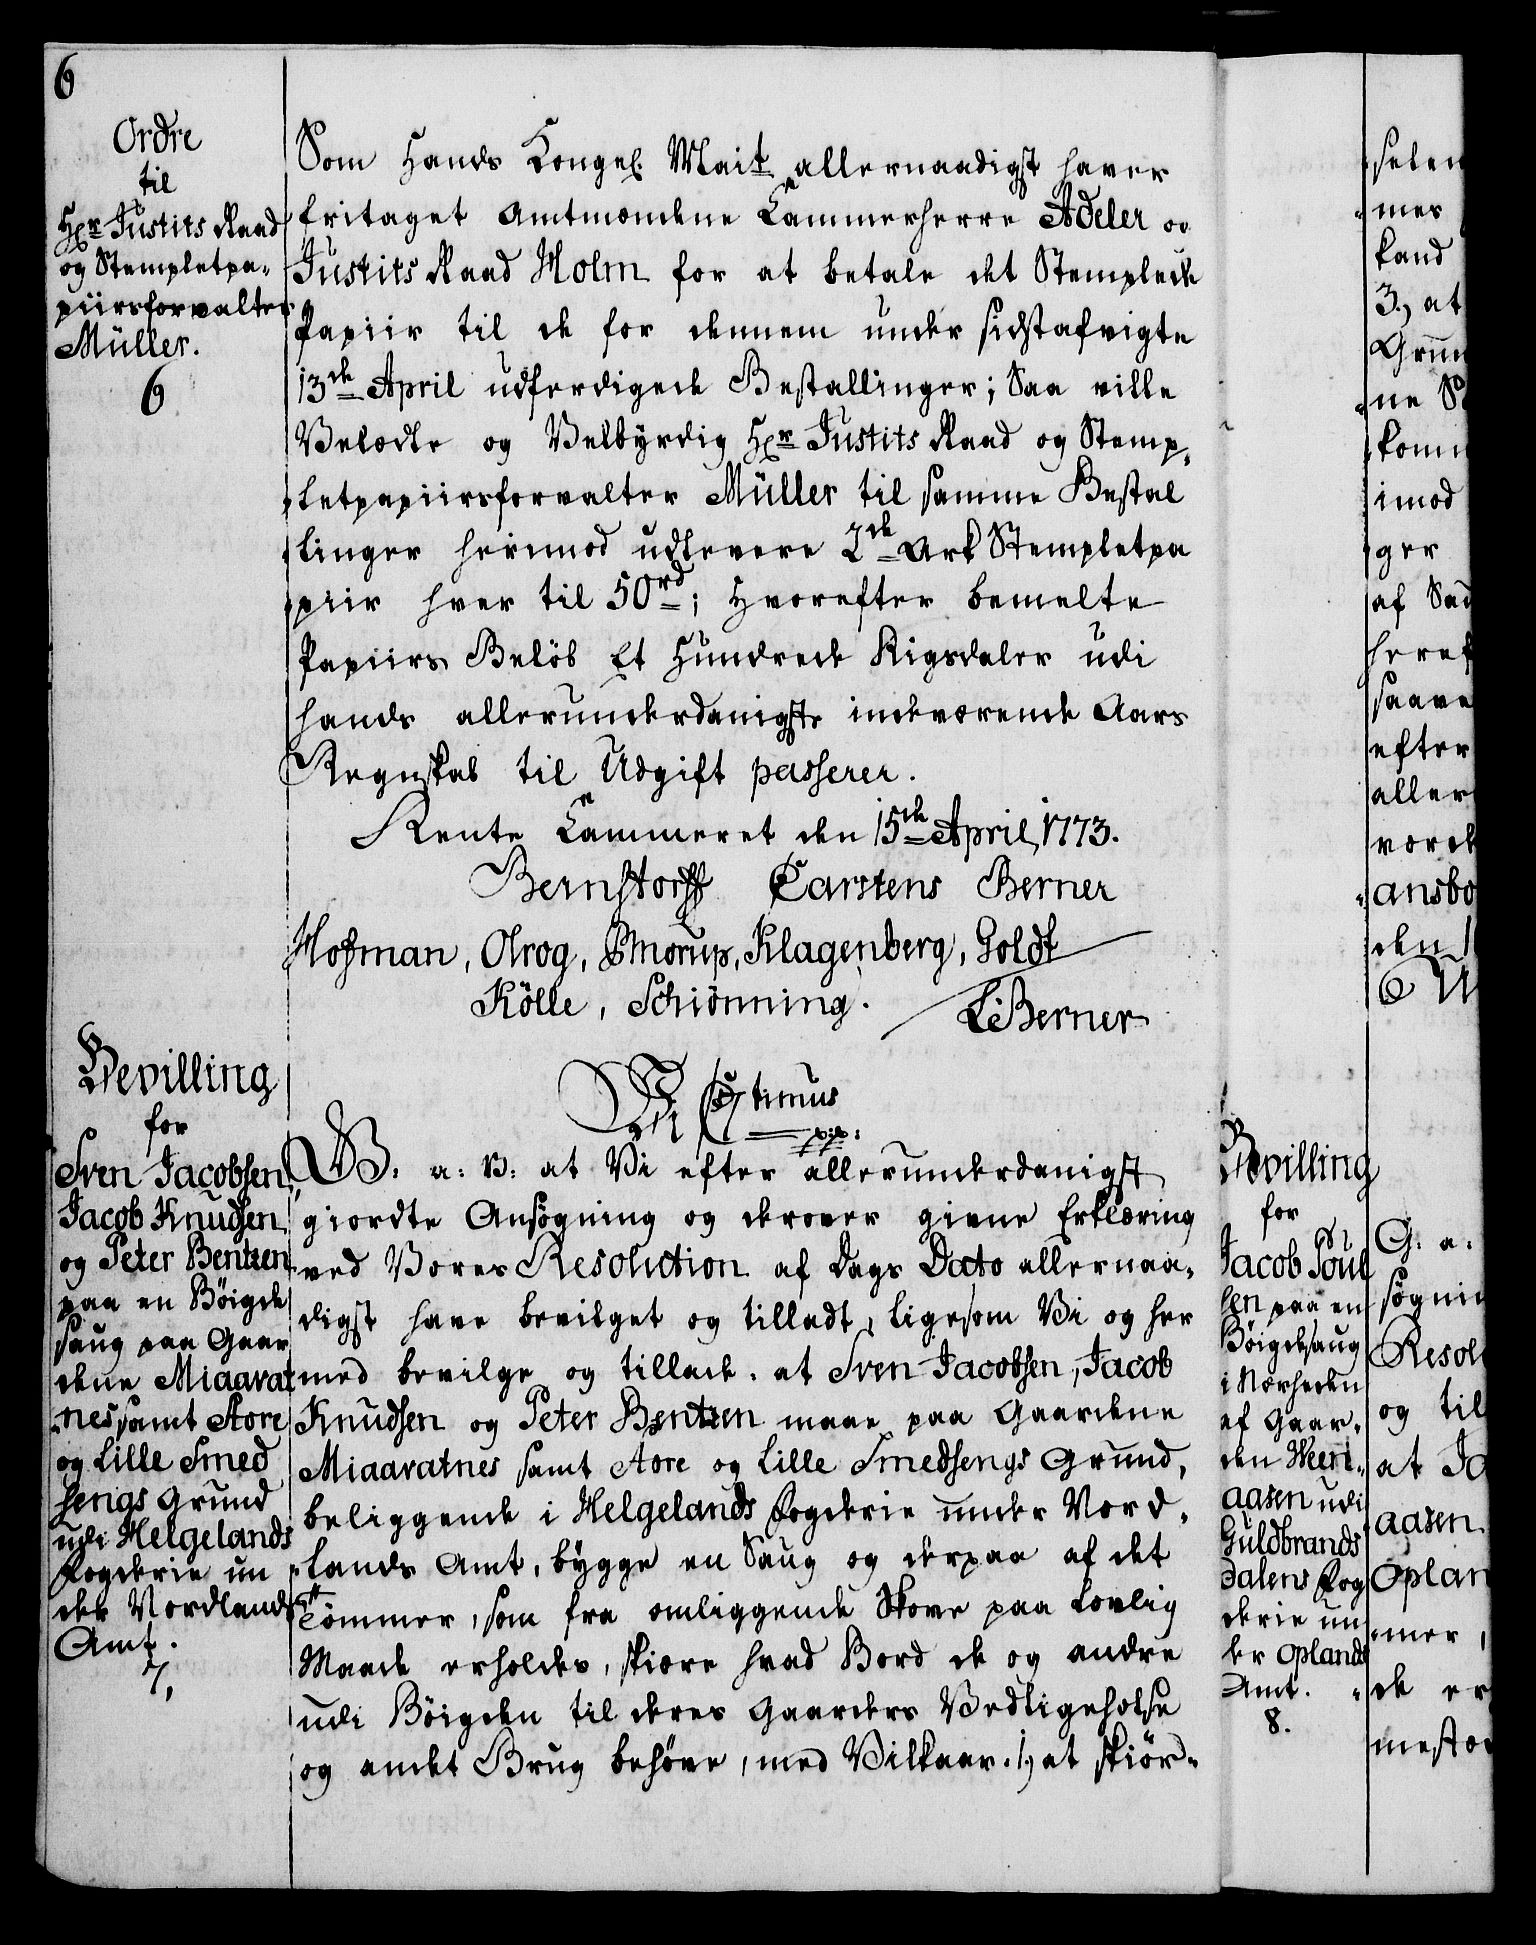 6
Ordre
til
Hr Justits Raad
og Stempletpa-
piirsforvalter
Müller.
6
Som Hands Kongel Mait allernaadigst haver
fritaget Amtmændene Cammerherre Adeler og
Justits Raad Holm for at betale det Stemplede
Papiir til de for dennem under sidstafvigte
13de April udferdigede Bestallinger; Saa ville
Velædle og Velbyrdig Hr Justits Raad og Stemp-
letpapiirsforvalter Müller til samme Bestal
linger herimod udlevere 2de Ark Stempletpa
piir hver til 50rd; Hvorefter bemelte
Papiirs Beløb Et Hundrede Rigsdaler udi
hands allerunderdanigste indeværende Aars
Regnskab til Udgift passerer.
Rente Cammeret den 15de April 1773.
Bernstorff Carstens Berner
Hofman, Olrog, Ømorup, Klagenberg, Goldt
Kölle, Schiönning.
L: Berner
Bevilling
for
Sven Jacobsen,
Jacob Knudsen
og Peter Bentzen
paa en Böigde
saug paa Gaar
dene Miaavat
nes samt Store
og Lille Smed
sengs Grund
udi Helgelands
Fogderie un
der Nordlands
Amt.
7,
Vi C 7timus
p:p:
G: a: V: at Vi efter allerunderdanigst
giordte Ansøgning og derover givne Erklæring
ved Vores Resolution af Dags Dato allernaa-
digst have bevilget og tilladt, ligesom Vi og her
med bevilge og tillade, at Sven Jacobsen, Jacob
Knudsen og Peter Bentzen maae paa Gaardene
Miaavatnes samt Store og Lille Smedsengs Grund,
beliggende i Helgelands Fogderie under Nord-
lands Amt, bygge en Saug og derpaa af det
Tømmer, som fra omliggende Skove paa lovlig
Maade erholdes, skiære hvad Bord de og andre
udi Böigden til deres Gaarders Vedligeholse
og andet Brug behøve, med Vilkaar. 1, at skiør-
Bevilling
for
Jacob Poul
sen paa en
Böigdesaug
i Nærheden
af Gaar-
den Ween-
aasen udi
Guldbrands
dalens Fog
derie un
der Oplands
Amt.
8.
selen
mer
kand
3, at
Grun
ne S
komm
imod
ger
af Sau
heref
saave
efter
aller
værd
ansbo
den 1
G. a.
søgnin
Resol
og til
at Ja
aasen
Oplan
mer,
de er
mesto